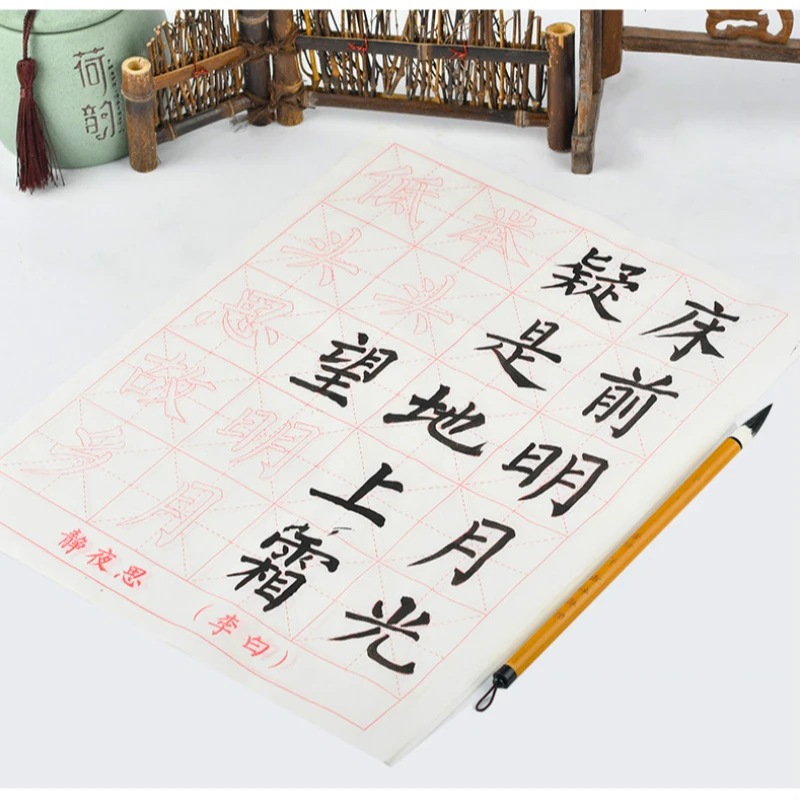 荷韵
床前明月光
疑是地上霜
举头望明月
低头思故乡
静夜思 （李白）